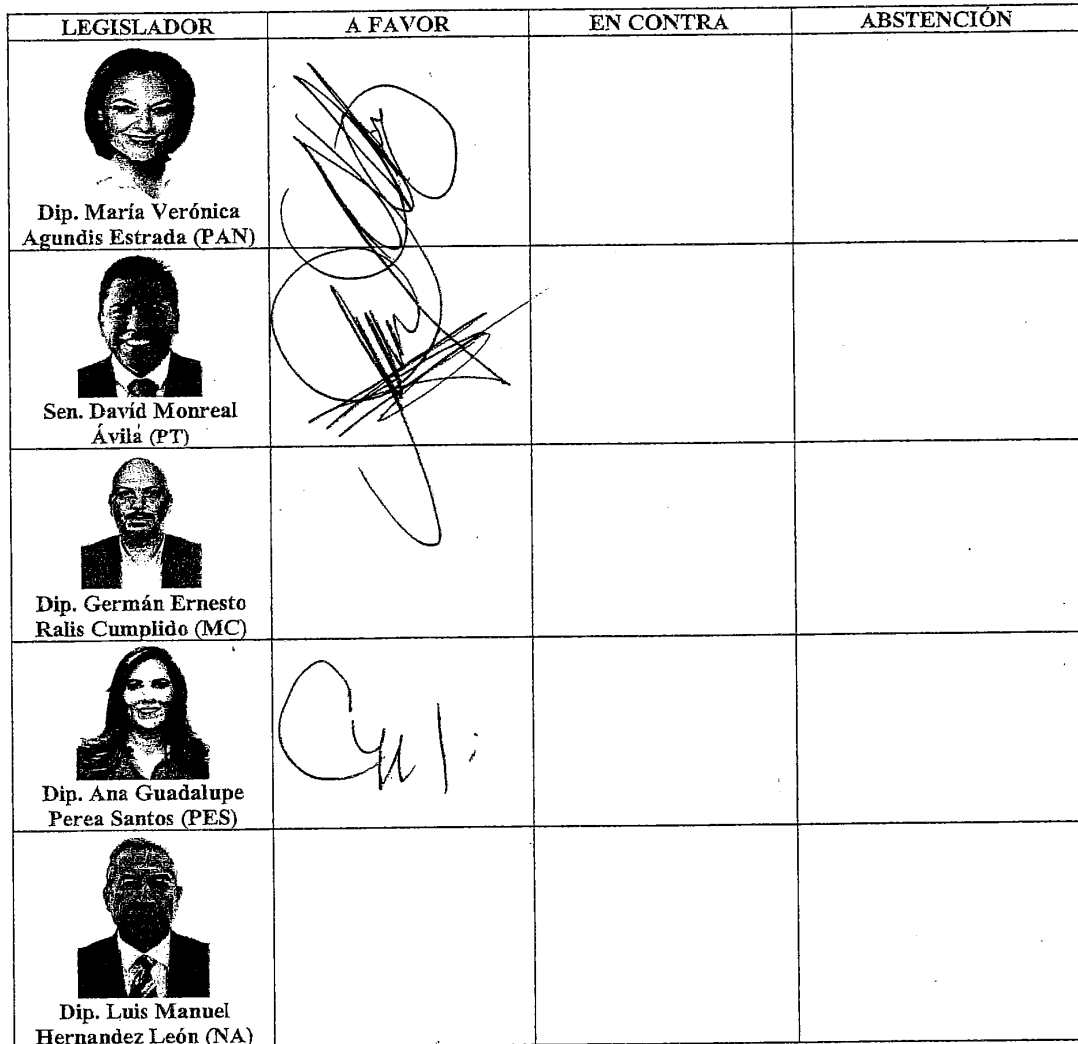 LEGISLADOR A FAVOR EN CONTRA ABSTENCIÓN
Dip. María Verónica
Agundis Estrada (PAN)
Sen. David Monreal
Ávila (PT)
Dip. Germán Ernesto
Ralis Cumplido (MC)
Dip. Ana Guadalupe
Perea Santos (PES)
Dip. Luis Manuel
Hernandez León (NA)